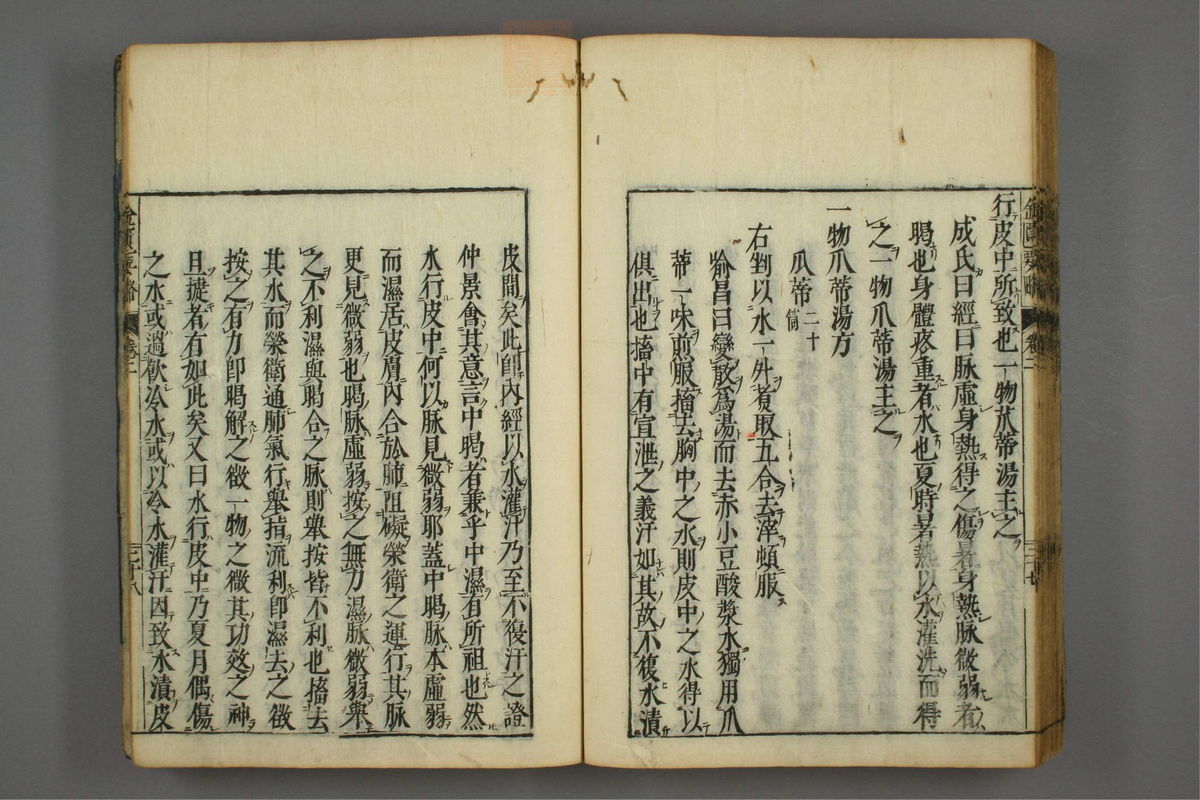 行皮中所致也一物瓜蒂湯主之
成氏曰經曰脉虛身熱得之傷暑身熱脉微弱者
暍也身體疼重者水也夏時暑熱以水灌洗而得
之一物瓜蒂湯主之
一物瓜蒂湯方
瓜蒂二十箇
右剉以水一升煑取五合去滓頓服
喻昌曰變散爲湯而去赤小豆酸漿水獨用瓜
蒂一味煎服搐去胸中之水則皮中之水得以
俱出也搐中有宣泄之義汗如其故不複水漬
皮間矣此卽內經以水灌汗乃至不復汗之證
仲景會其意言中暍者兼乎中濕有所祖也然
水行皮中何以脉見微弱耶蓋中暍脉本虛弱
而濕居皮膚內合於肺阻礙榮衛之運行其脉
更見微弱也暍脉虛弱按之無力濕脉微弱舉
之不利濕與暍合之脉則舉按皆不利也搐去
其水而榮衛通肺氣行舉指流利卽濕去之徵
按之有力卽暍解之徵一物之微其功效之神
且㨗者有如此矣又曰水行皮中乃夏月偶傷
之水或過飲冷水或以冷水灌汗因致水漬皮
卷二
卷二